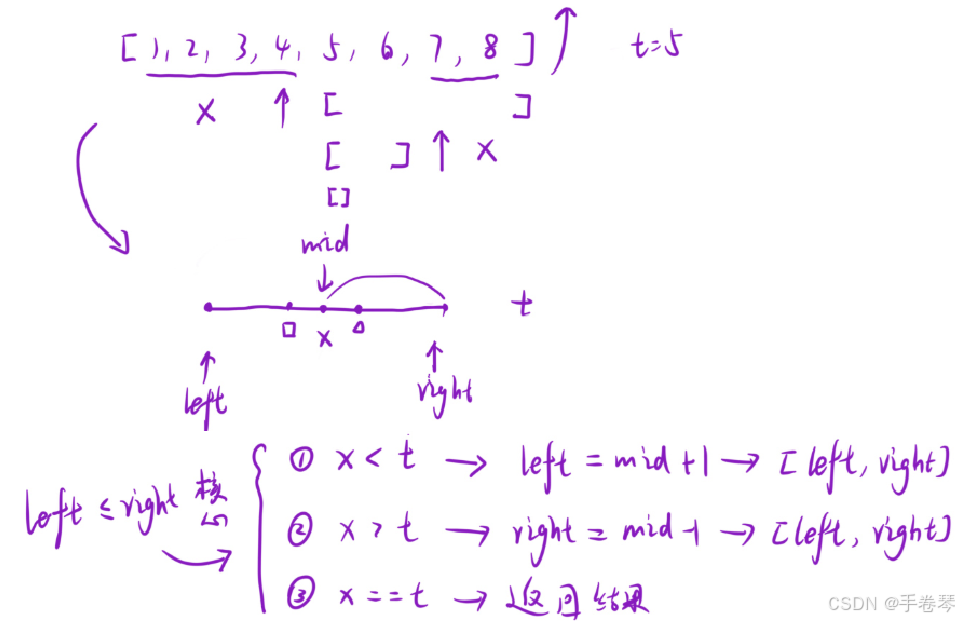 [1, 2, 3, 4, 5, 6, 7, 8] t=5
x ↑ [ ]
[ ] ↑ x
[]
mid
t
□ x △
left right
① x < t → left = mid +1 → [left, right]
left ≤ right 核心
② x > t → right = mid -1 → [left, right]
③ x == t → 返回结果
CSDN @手卷琴